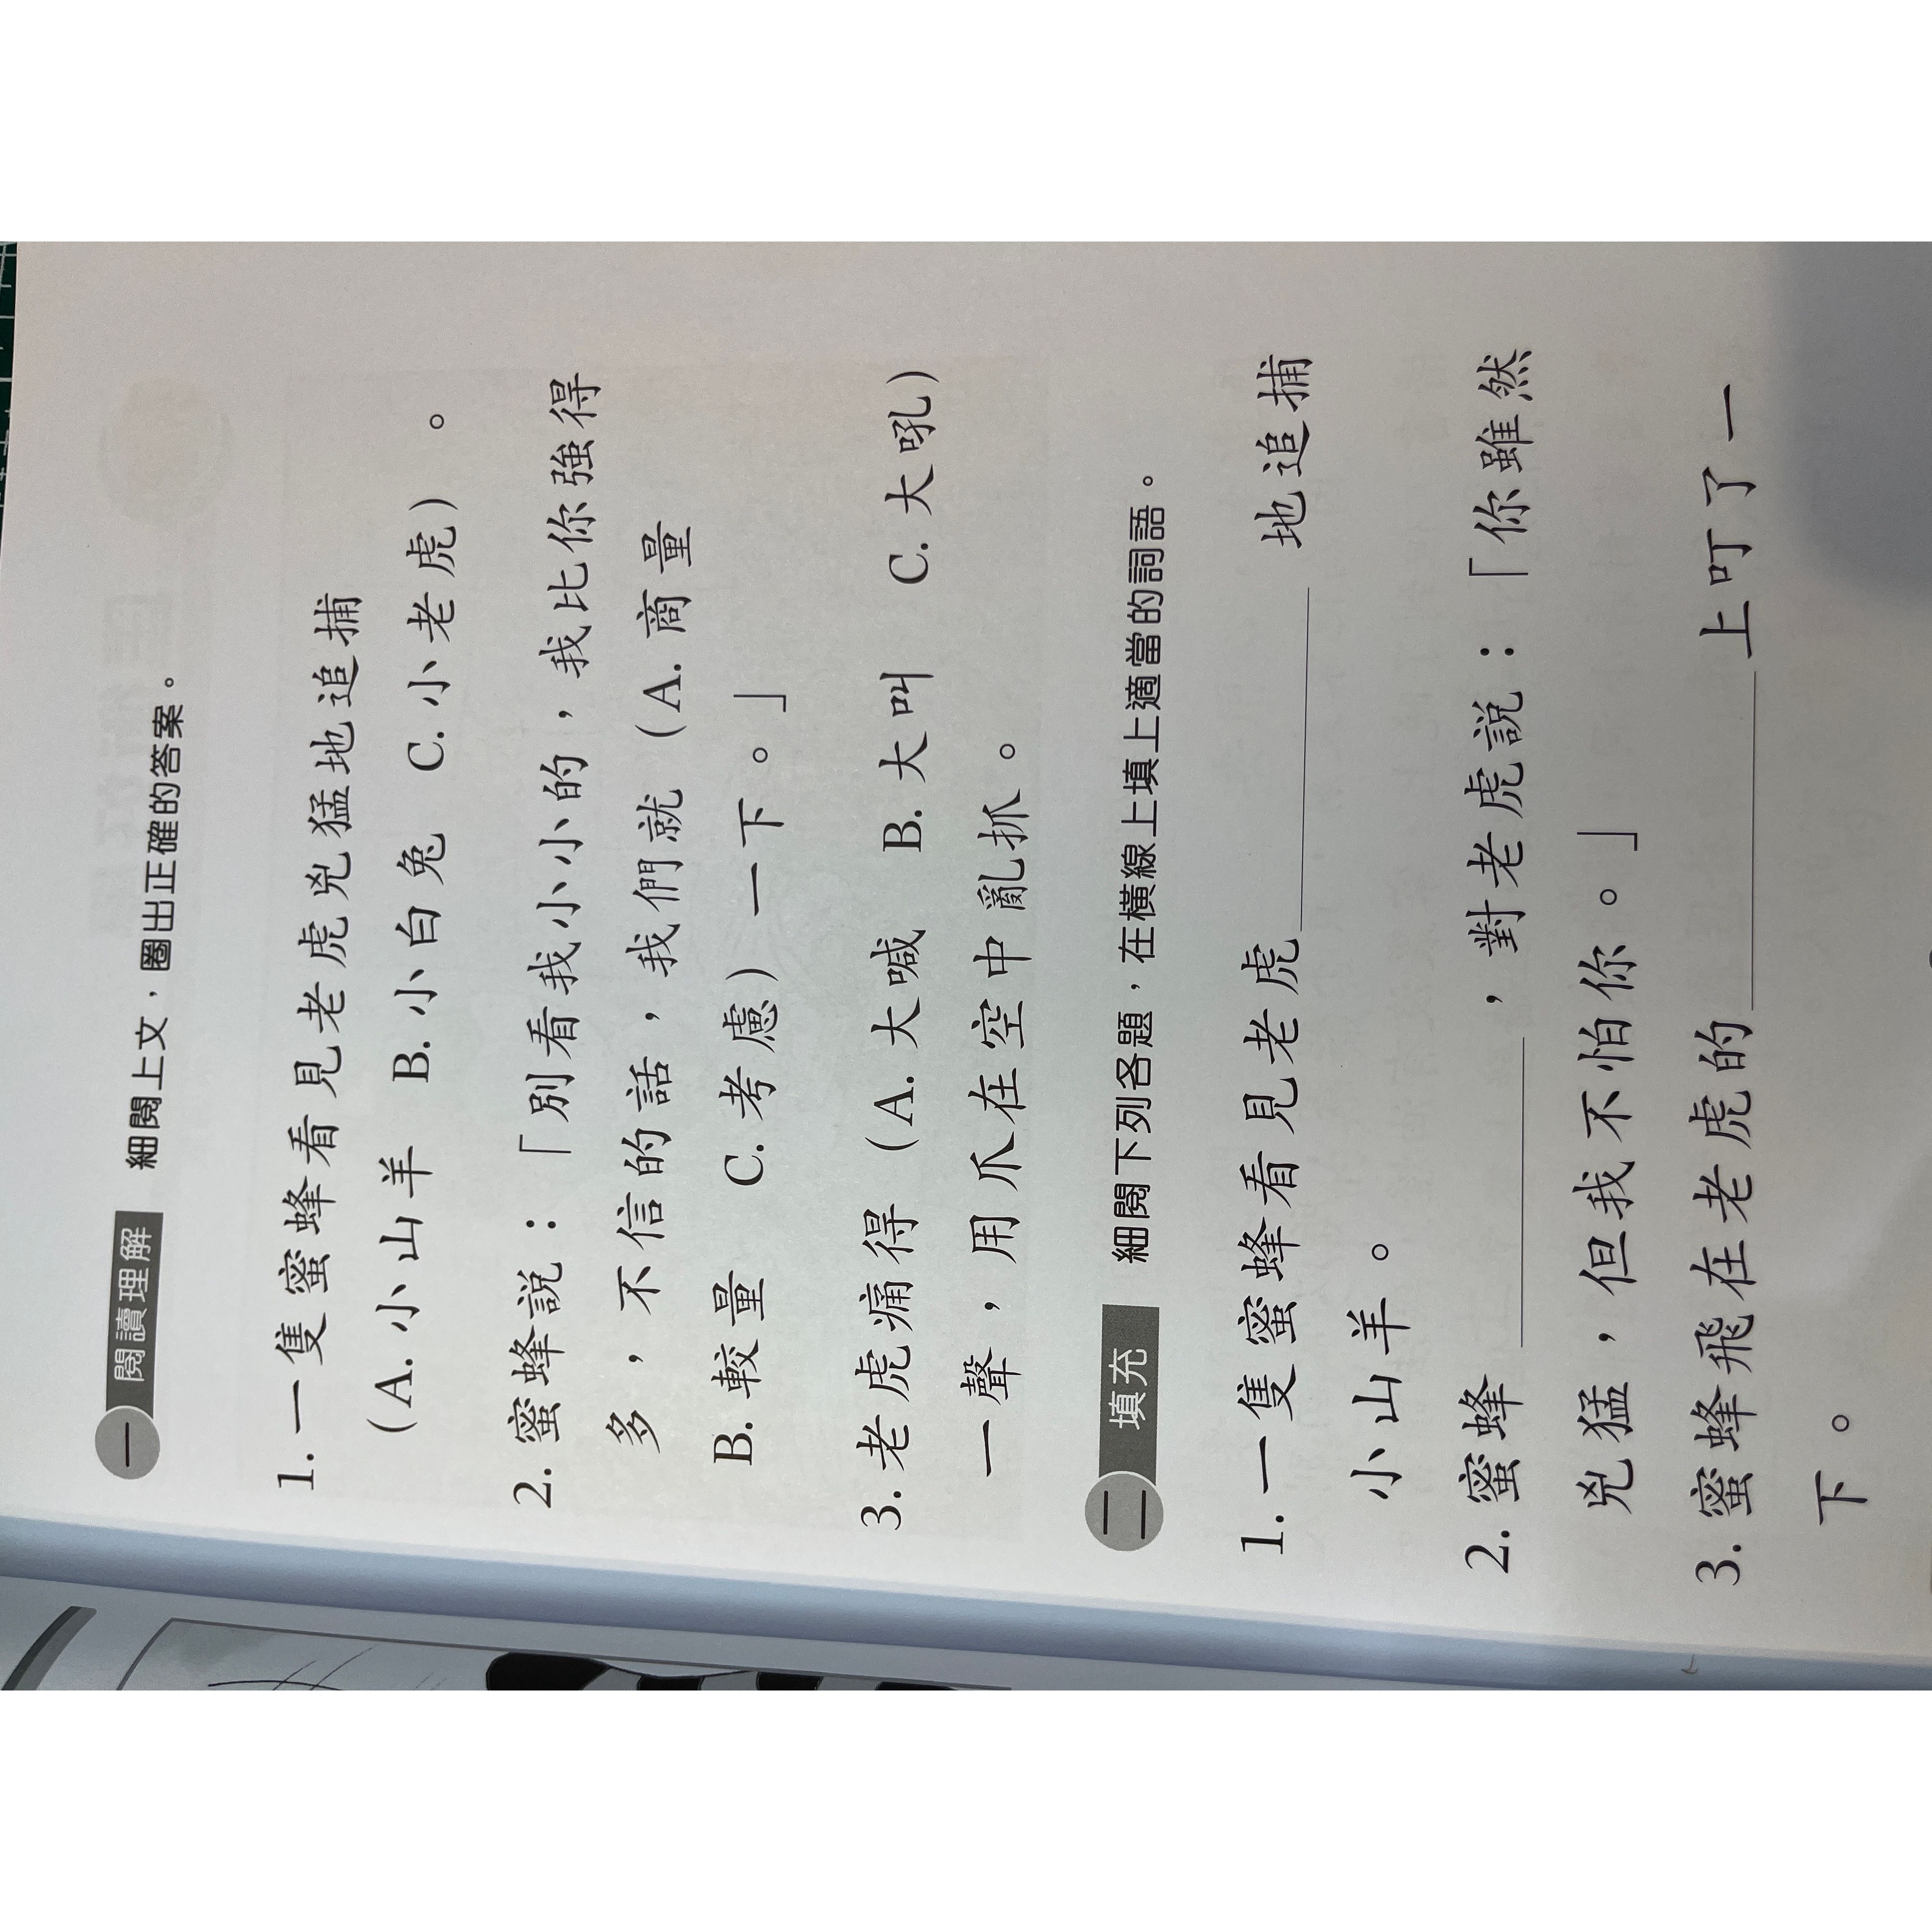 一 閱讀理解 細閱上文，圈出正確的答案。
1. 一隻蜜蜂看見老虎兇猛地追捕
（A. 小山羊 B. 小白兔 C. 小老虎）。
2. 蜜蜂説：「別看我小小的，我比你強得
多，不信的話，我們就（A. 商量
B. 較量 C. 考慮）一下。」
3. 老虎痛得（A. 大喊 B. 大叫 C. 大吼）
一聲，用爪在空中亂抓。
二 填充 細閱下列各題，在橫線上填上適當的詞語。
1. 一隻蜜蜂看見老虎__________地追捕
小山羊。
2. 蜜蜂__________，對老虎説：「你雖然
兇猛，但我不怕你。」
3. 蜜蜂飛在老虎的__________上叮了一
下。